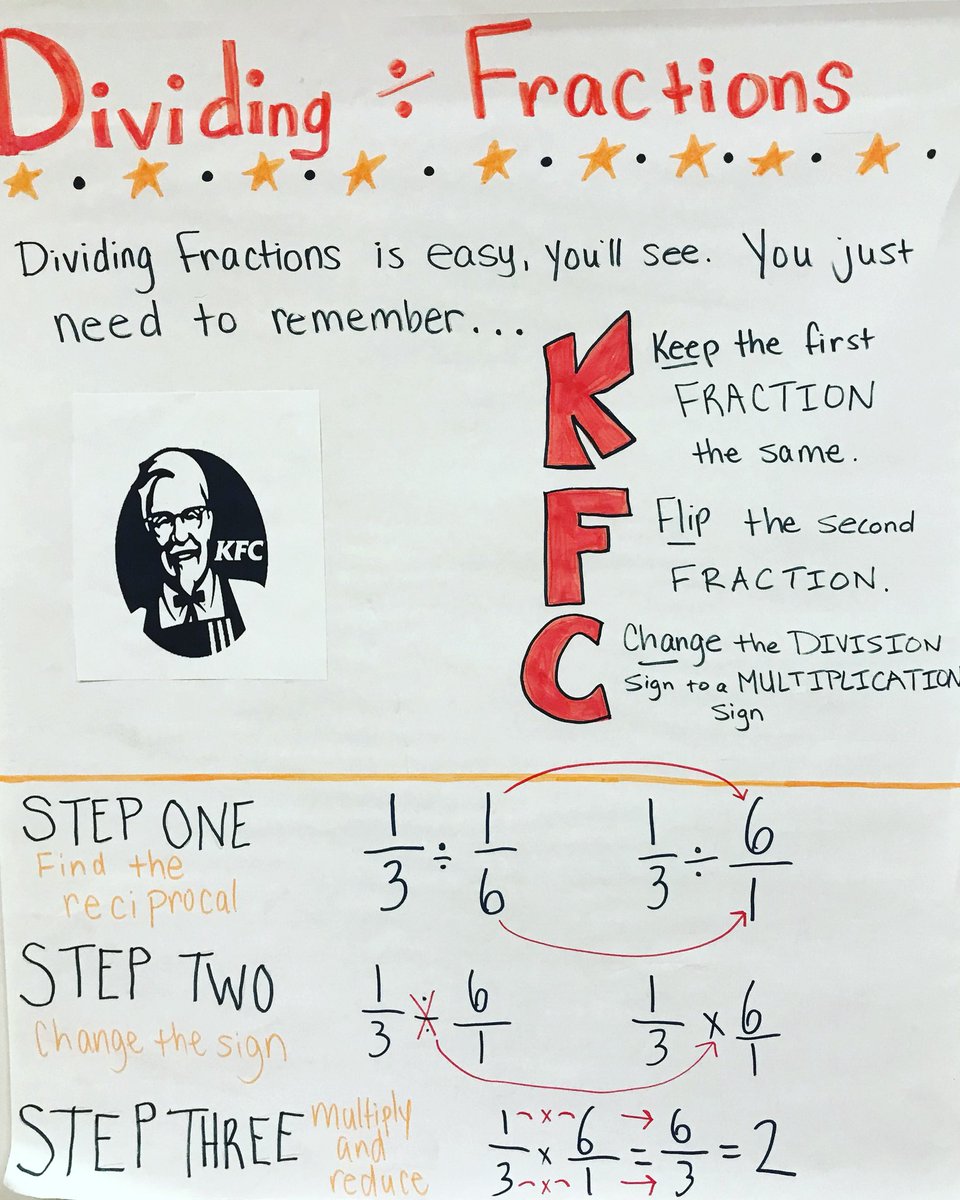 Dividing ÷ Fractions
Dividing Fractions is easy, you'll see. You just
need to remember...
K Keep the first
FRACTION
the same.
KFC
F Flip the second
FRACTION.
C Change the DIVISION
sign to a MULTIPLICATION
sign
STEP ONE
Find the
reciprocal
1/3 ÷ 1/6 1/3 ÷ 6/1
STEP TWO
Change the sign
1/3 ÷ 6/1 1/3 x 6/1
STEP THREE
multiply
and
reduce
1/3 x 6/1 = 6/3 = 2